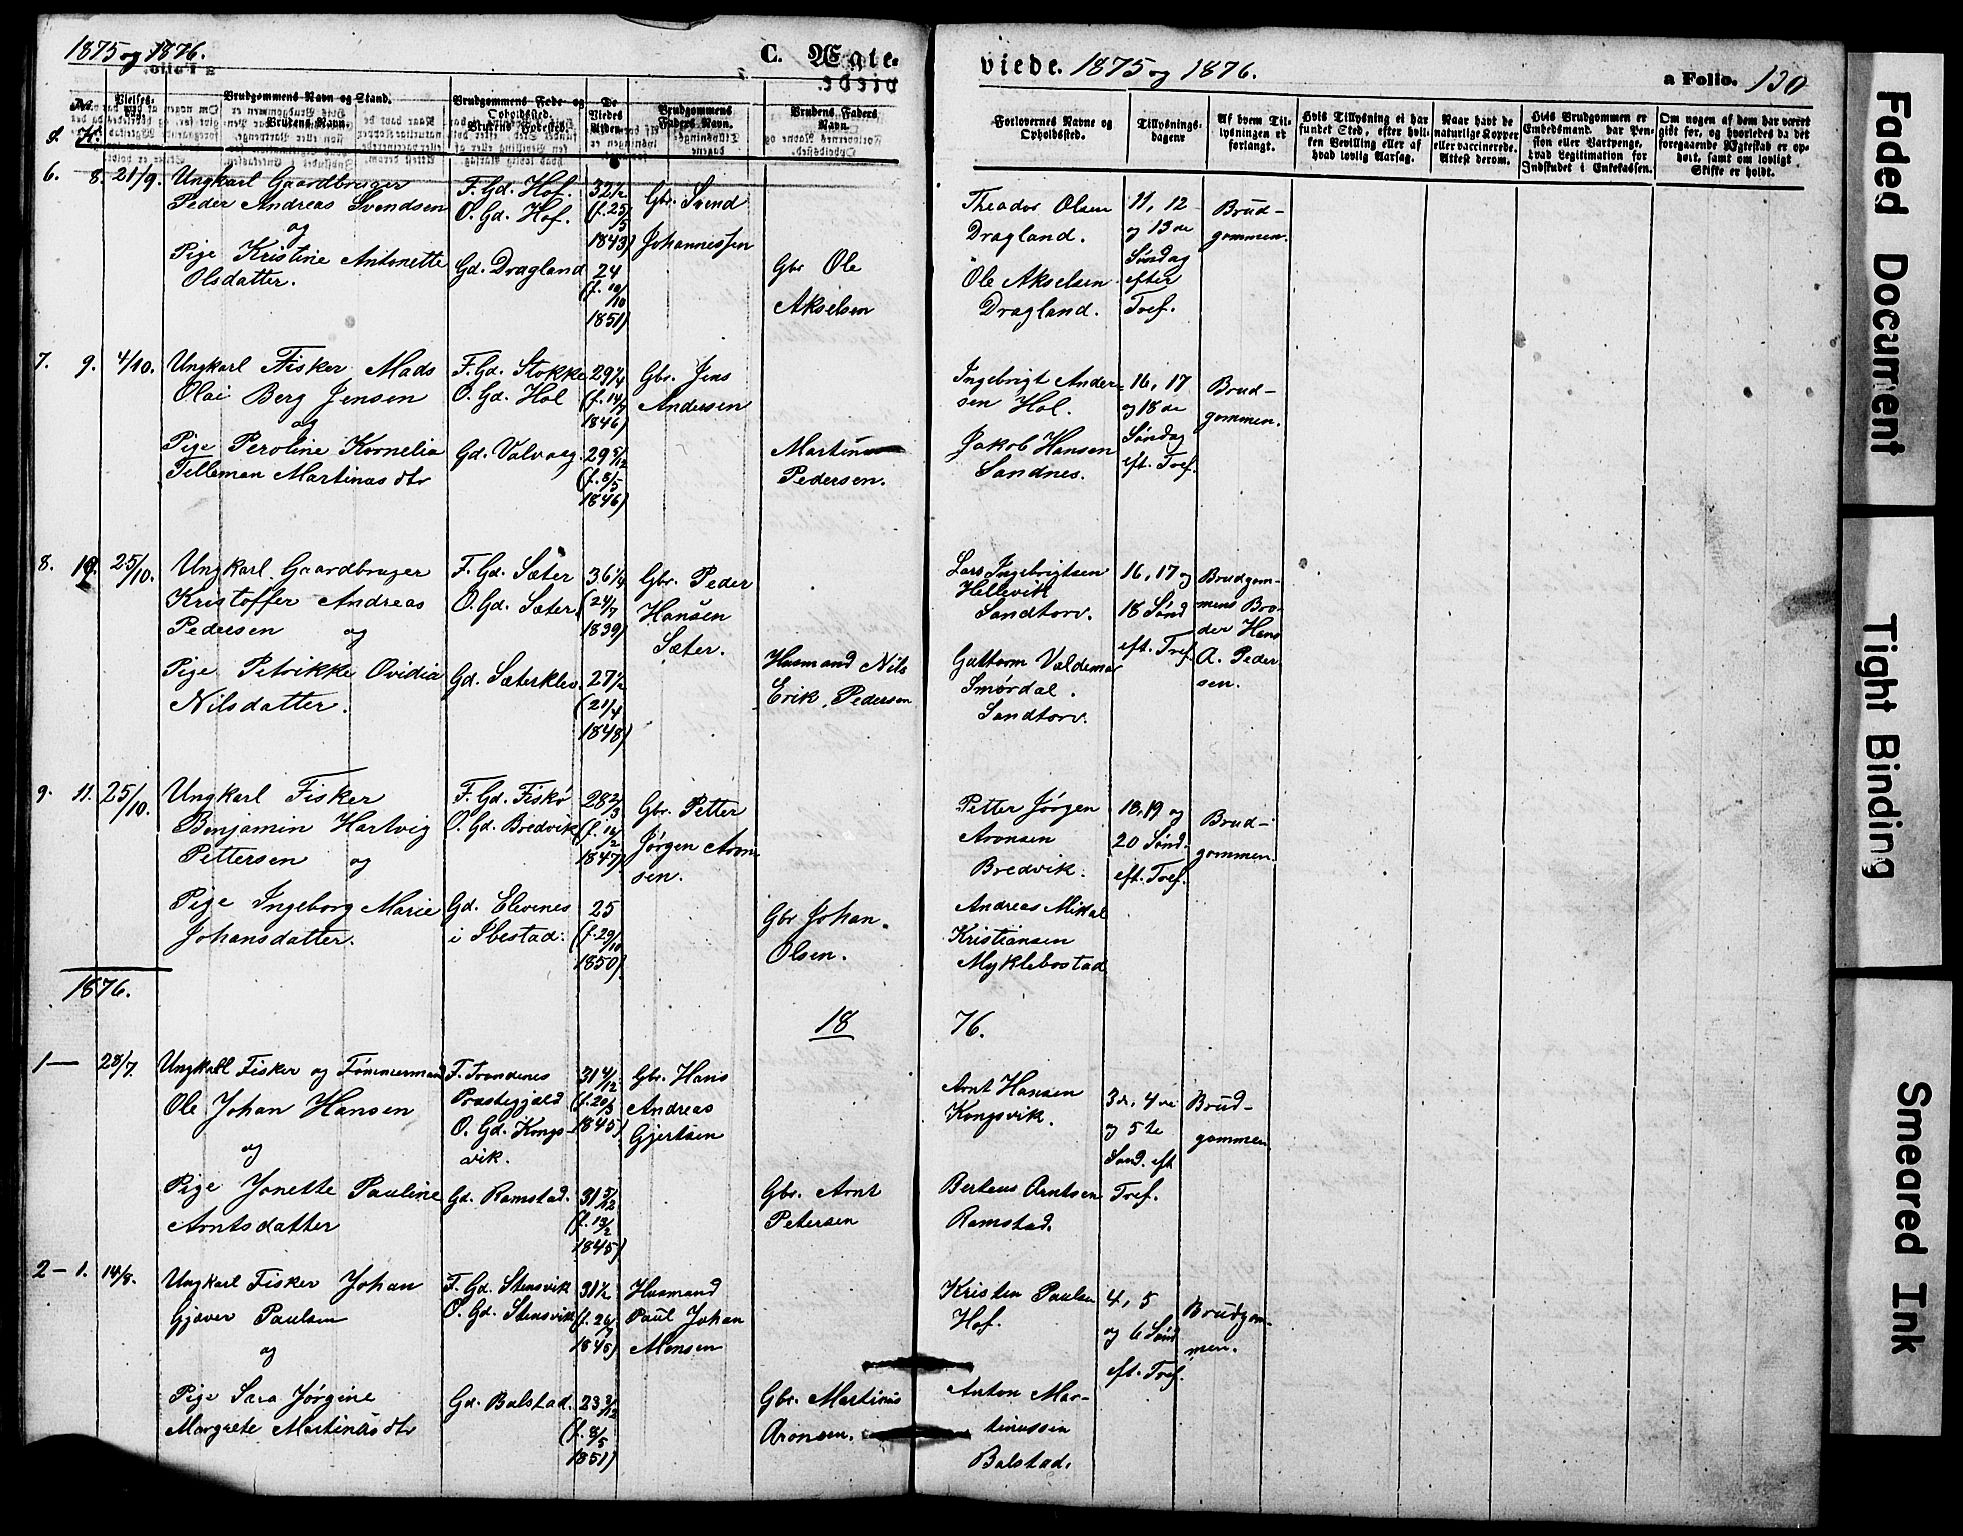 1875 og 1876.
C. Ægte-
viede. 1875 og 1876.
a Folio. 130
No. S. K.
Vielses-Dag.
Brudgommens Navn og Stand.
Brudens Navn.
Brudgommens Føde- og Opholdssted.
Brudens Fødested.
De Viedes Alder.
Brudgommens Faders Navn.
Brudens Faders Navn.
Forlovernes Navne og Opholdssted.
Tillysnings-dagene
Af hvem Til-lysningen er forlangt.
Hvis Tillysning ei har fundet Sted, efter hvil-ken Bevilling eller af hvad lovlig Aarsag.
Naar havt de naturlige Kopper eller vaccinerede. Attest derom.
Hvis Brudgommen er Embedsmand, har Pen-sion eller Vartpenge, hvad Legitimation for Indskudet i Enkekassen.
Om nogen af dem har været gift før, og hvorledes da det foregaaende Ægteskab er op-hørt, samt om lovligt Skifte er holdt.
6. 8. 21/9.
Ungkarl Gaardbruger
Peder Andreas Svendsen
og
Pige Kristine Antonette
Olsdatter.
F. Gd. Hof.
O. Gd. Hof.
Gd. Dragland
32 1/2
(f. 25/5
1843)
24
(f. 10/10
1851)
Gbr. Svend
Johannessen
Gbr Ole
Akselsen
Theodor Olsen
Dragland.
Ole Akselsen
Dragland.
11, 12
og 13de
Søndag
efter
Tref.
Brud-
gommen.
7. 9. 4/10.
Ungkarl Fisker Mads
Olai Berg Jensen
og
Pige Peroline Kornelia
Tilleman Martinas dtr
F. Gd. Stokke
O. Gd. Hol
Gd. Valvaag.
29 1/4
(f. 14/7
1846)
29 5/12
(f. 8/5
1846)
Gbr. Jens
Andersen
Martinus
Pedersen.
Ingebrigt Ander-
sen Hol.
Jakob Hansen
Sandnes.
16, 17
og 18de
Søndag
eft. Tref.
Brud-
gommen.
8. 10. 25/10.
Ungkarl Gaardbruger
Kristoffer Andreas
Pedersen og
Pige Petrikke Ovidia
Nilsdatter.
F. Gd. Sæter
O. Gd. Sæter.
Gd. Sæterklev.
36 1/4
(24/7
1839)
27 1/2
(21/4
1848)
Gbr. Peder
Hansen
Sæter.
Husmand Nils
Erik Pedersen
Lars Ingebrigtsen
Hellevik
Sandtorv.
Guttorm Valdemar
Smørdal.
Sandtorv.
16, 17 og
18 Sønd
eft. Tref
Brudgom-
mens Bro-
der Hans
A. Peder
sen.
9. 11. 25/10.
Ungkarl Fisker
Benjamin Hartvig
Pettersen og
Pige Ingeborg Marie
Johansdatter.
F. Gd. Fiskø
O. Gd. Bredvik
Gd. Elevenes
i Ibestad.
28 2/3
(f. 16/2
1847)
25
(f. 29/10
1850)
Gbr. Petter
Jørgen Aron
sen.
Gbr Johan
Olsen.
Petter Jørgen
Aronsen
Bredvik.
Andreas Mikal
Kristiansen
Myklebostad
18, 19 og
20 Sønd.
eft. Tref.
Brud-
gommen.
1876.
18 76.
1— 28/7.
Ungkarl Fisker og Tømmermand
Ole Johan Hansen
og
Pige Jonette Pauline
Arntsdatter
F. Trondenes
Præstegjæld
O. Gd. Kongs-
vik.
Gd. Ramstad.
31 4/12
(f. 20/3
1845)
31 5/12
(f. 13/2
1845)
Gbr. Hans
Andreas
Gjertsen
Gbr. Arnt
Petersen
Arnt Hansen
Kongsvik.
Berteus Arntsen
Ramstad.
3die, 4de
og 5te
Sønd. eft
Tref.
Brud-
gommen
2 — 1. 14/8.
Ungkarl Fisker Johan
Gjæver Paulsen
og
Pige Sara Jørgine
Margrete Martinas dtr
F. Gd. Stensvik
O. Gd. Stensvik
Gd. Balstad.
31 1/2
(f. 26/7
1845)
23 3/12
(f. 8/5
1851)
Husmand
Paul Johan
Monsen
Gbr. Martinus
Aronsen.
Kristen Paulsen
Hof.
Anton Mar-
tinussen
Balstad.
4, 5
og 6 Sønd
eft. Tref.
Brudgom-
men.
Faded Document
Tight Binding
Smeared Ink